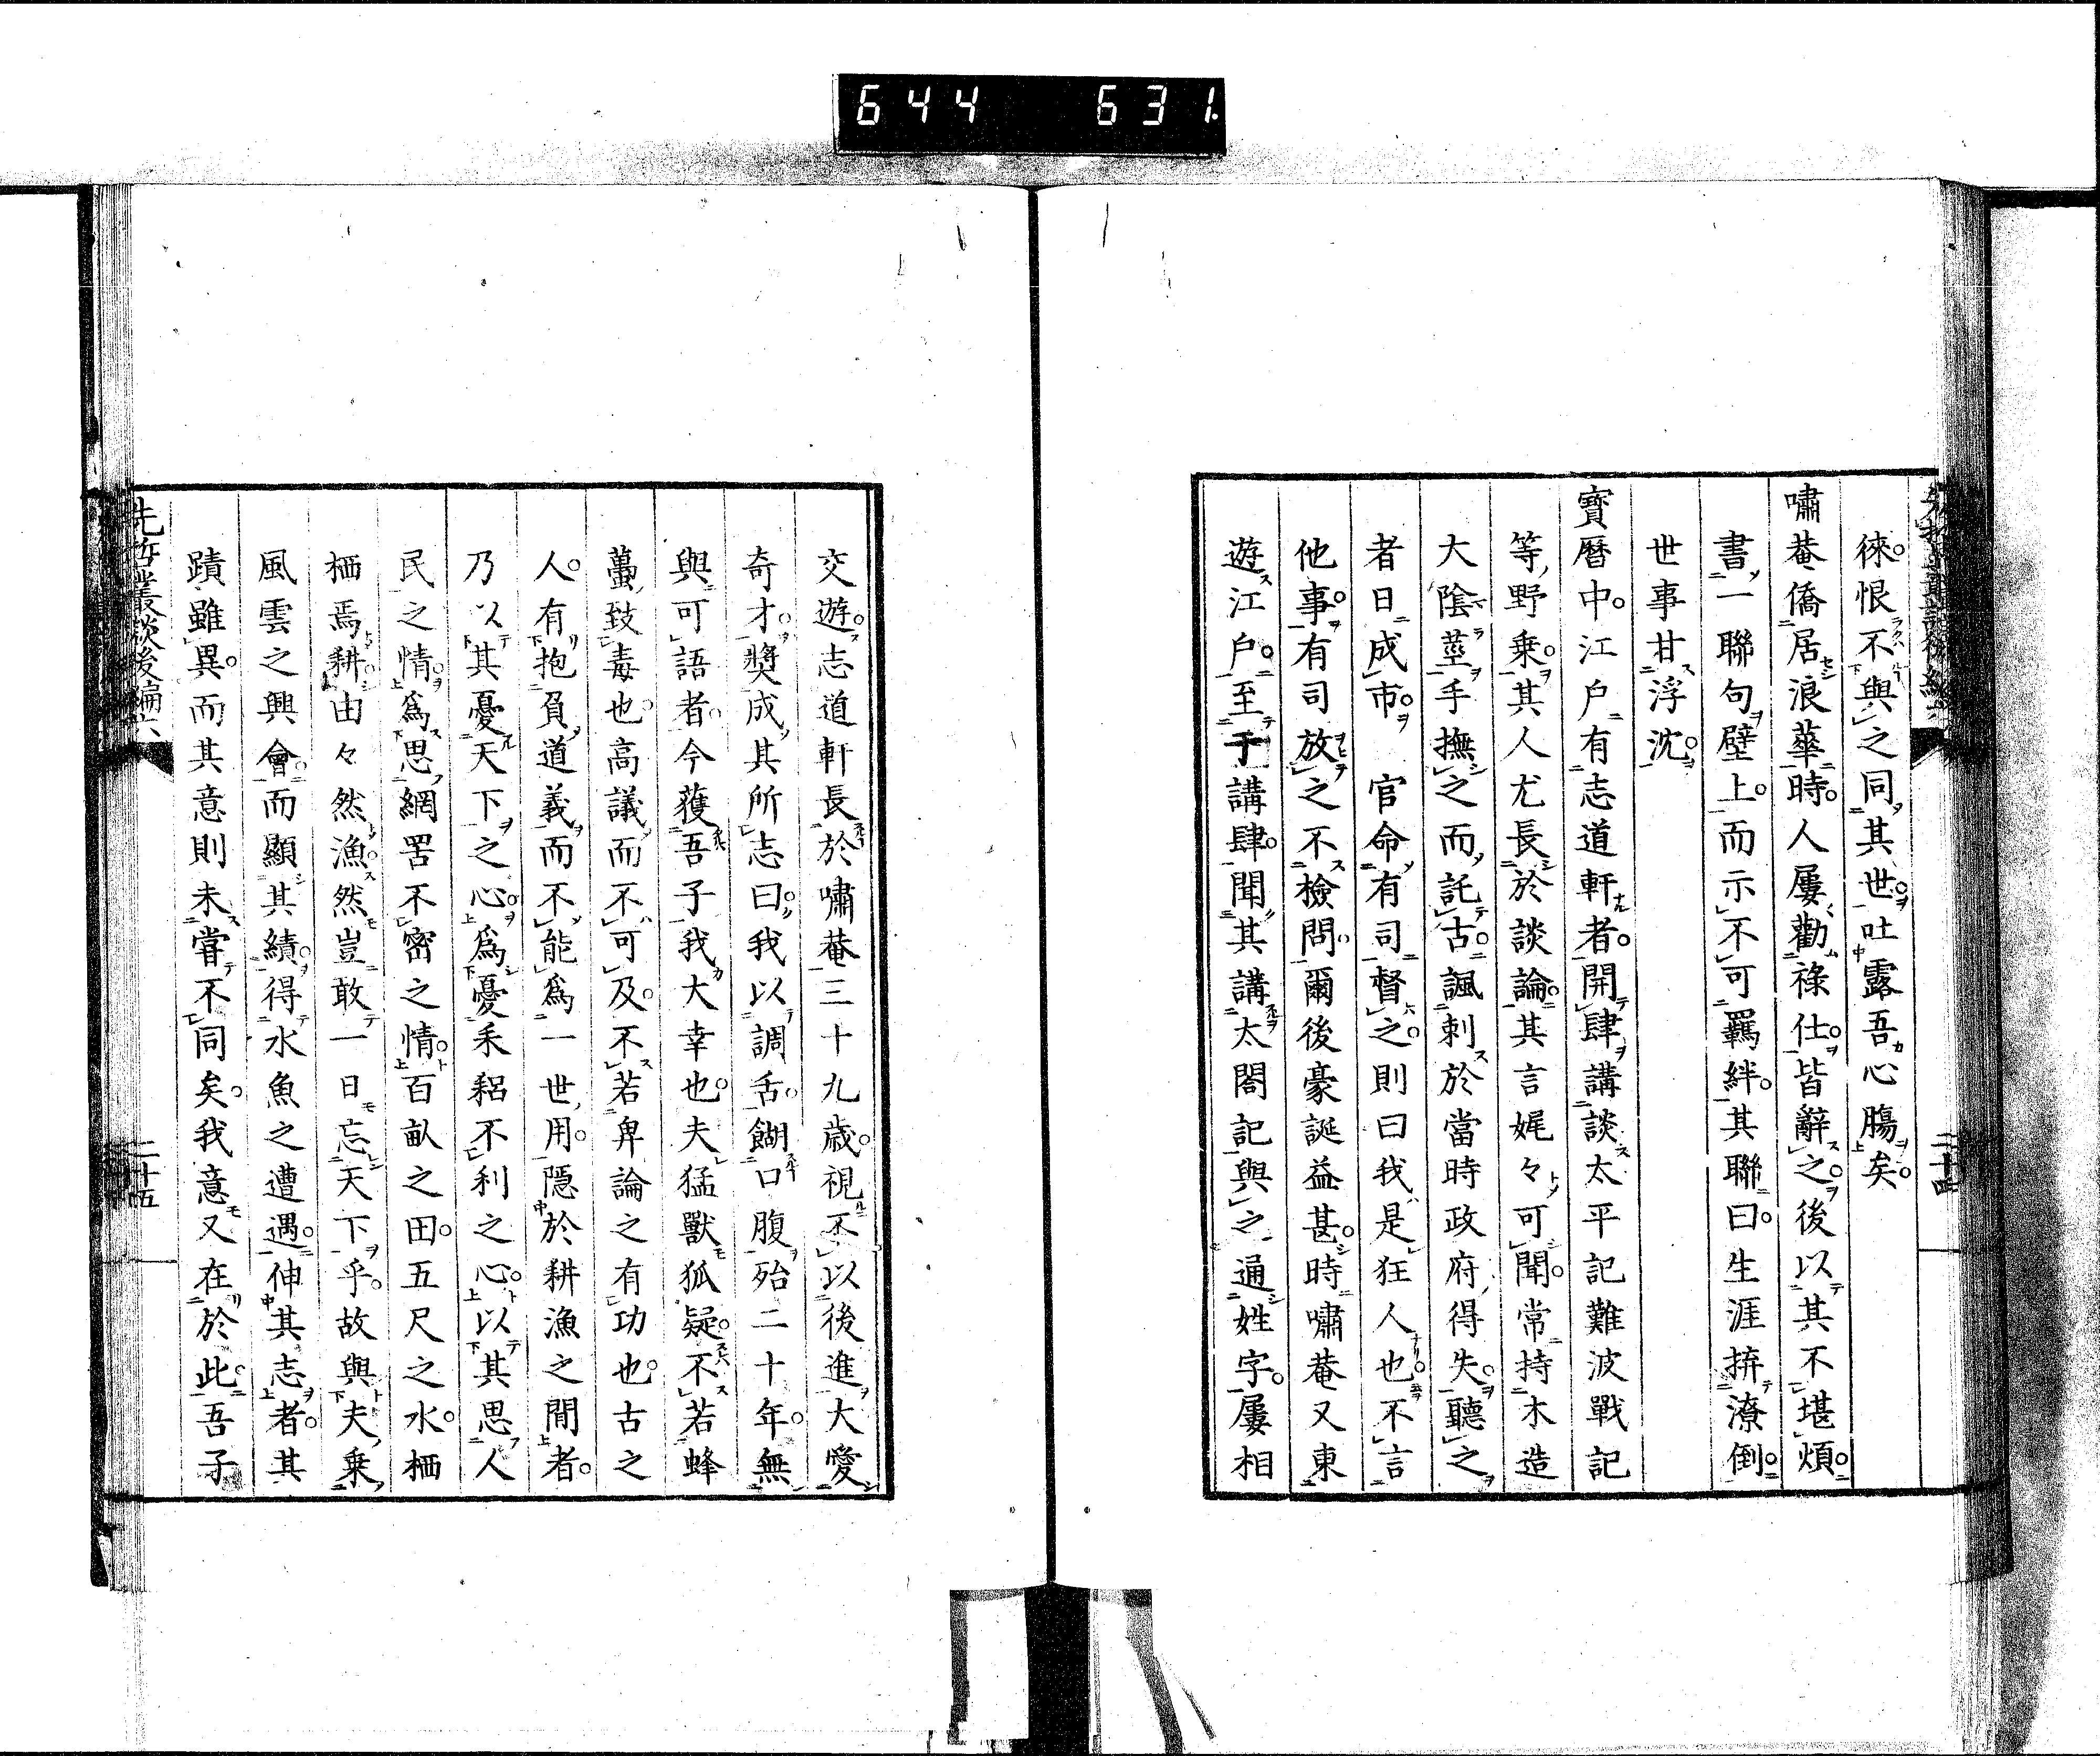 644 631
徠恨不與之同其世吐露吾心膓矣
嘯菴僑居浪華時人屢勸祿仕皆辭之後以其不堪煩
書一聯句壁上而示不可羈絆其聯曰生涯拚潦倒
世事甘浮沈
寶曆中江戶有志道軒者開肆講談太平記難波戰記
等野乘其人尤長於談論其言娓々可聞常持木造
大陰莖手撫之而託古諷刺於當時政府得失聽之
者日成市官命有司督之則曰我是狂人也不言
他事有司放之不檢問爾後豪誕益甚時嘯菴又東
遊江戶至于講肆聞其講太閤記與之通姓字屢相
二十四
交遊志道軒長於嘯菴三十九歲視丕以後進大愛
奇才獎成其所志曰我以調舌餬口腹殆二十年無
與可語者今獲吾子我大幸也夫猛獸狐疑不若蜂
蠆致毒也高議而不可及不若卑論之有功也古之
人有抱負道義而不能爲一世用隱於耕漁之間者
乃以其憂天下之心爲憂耒耜不利之心以其思人
民之情爲思網罟不密之情百畝之田五尺之水栖
栖焉耕由々然漁然豈敢一日忘天下乎故與夫乘
風雲之興會而顯其績得水魚之遭遇伸其志者其
蹟雖異而其意則未嘗不同矣我意又在於此吾子
先哲叢談後編六
二十五